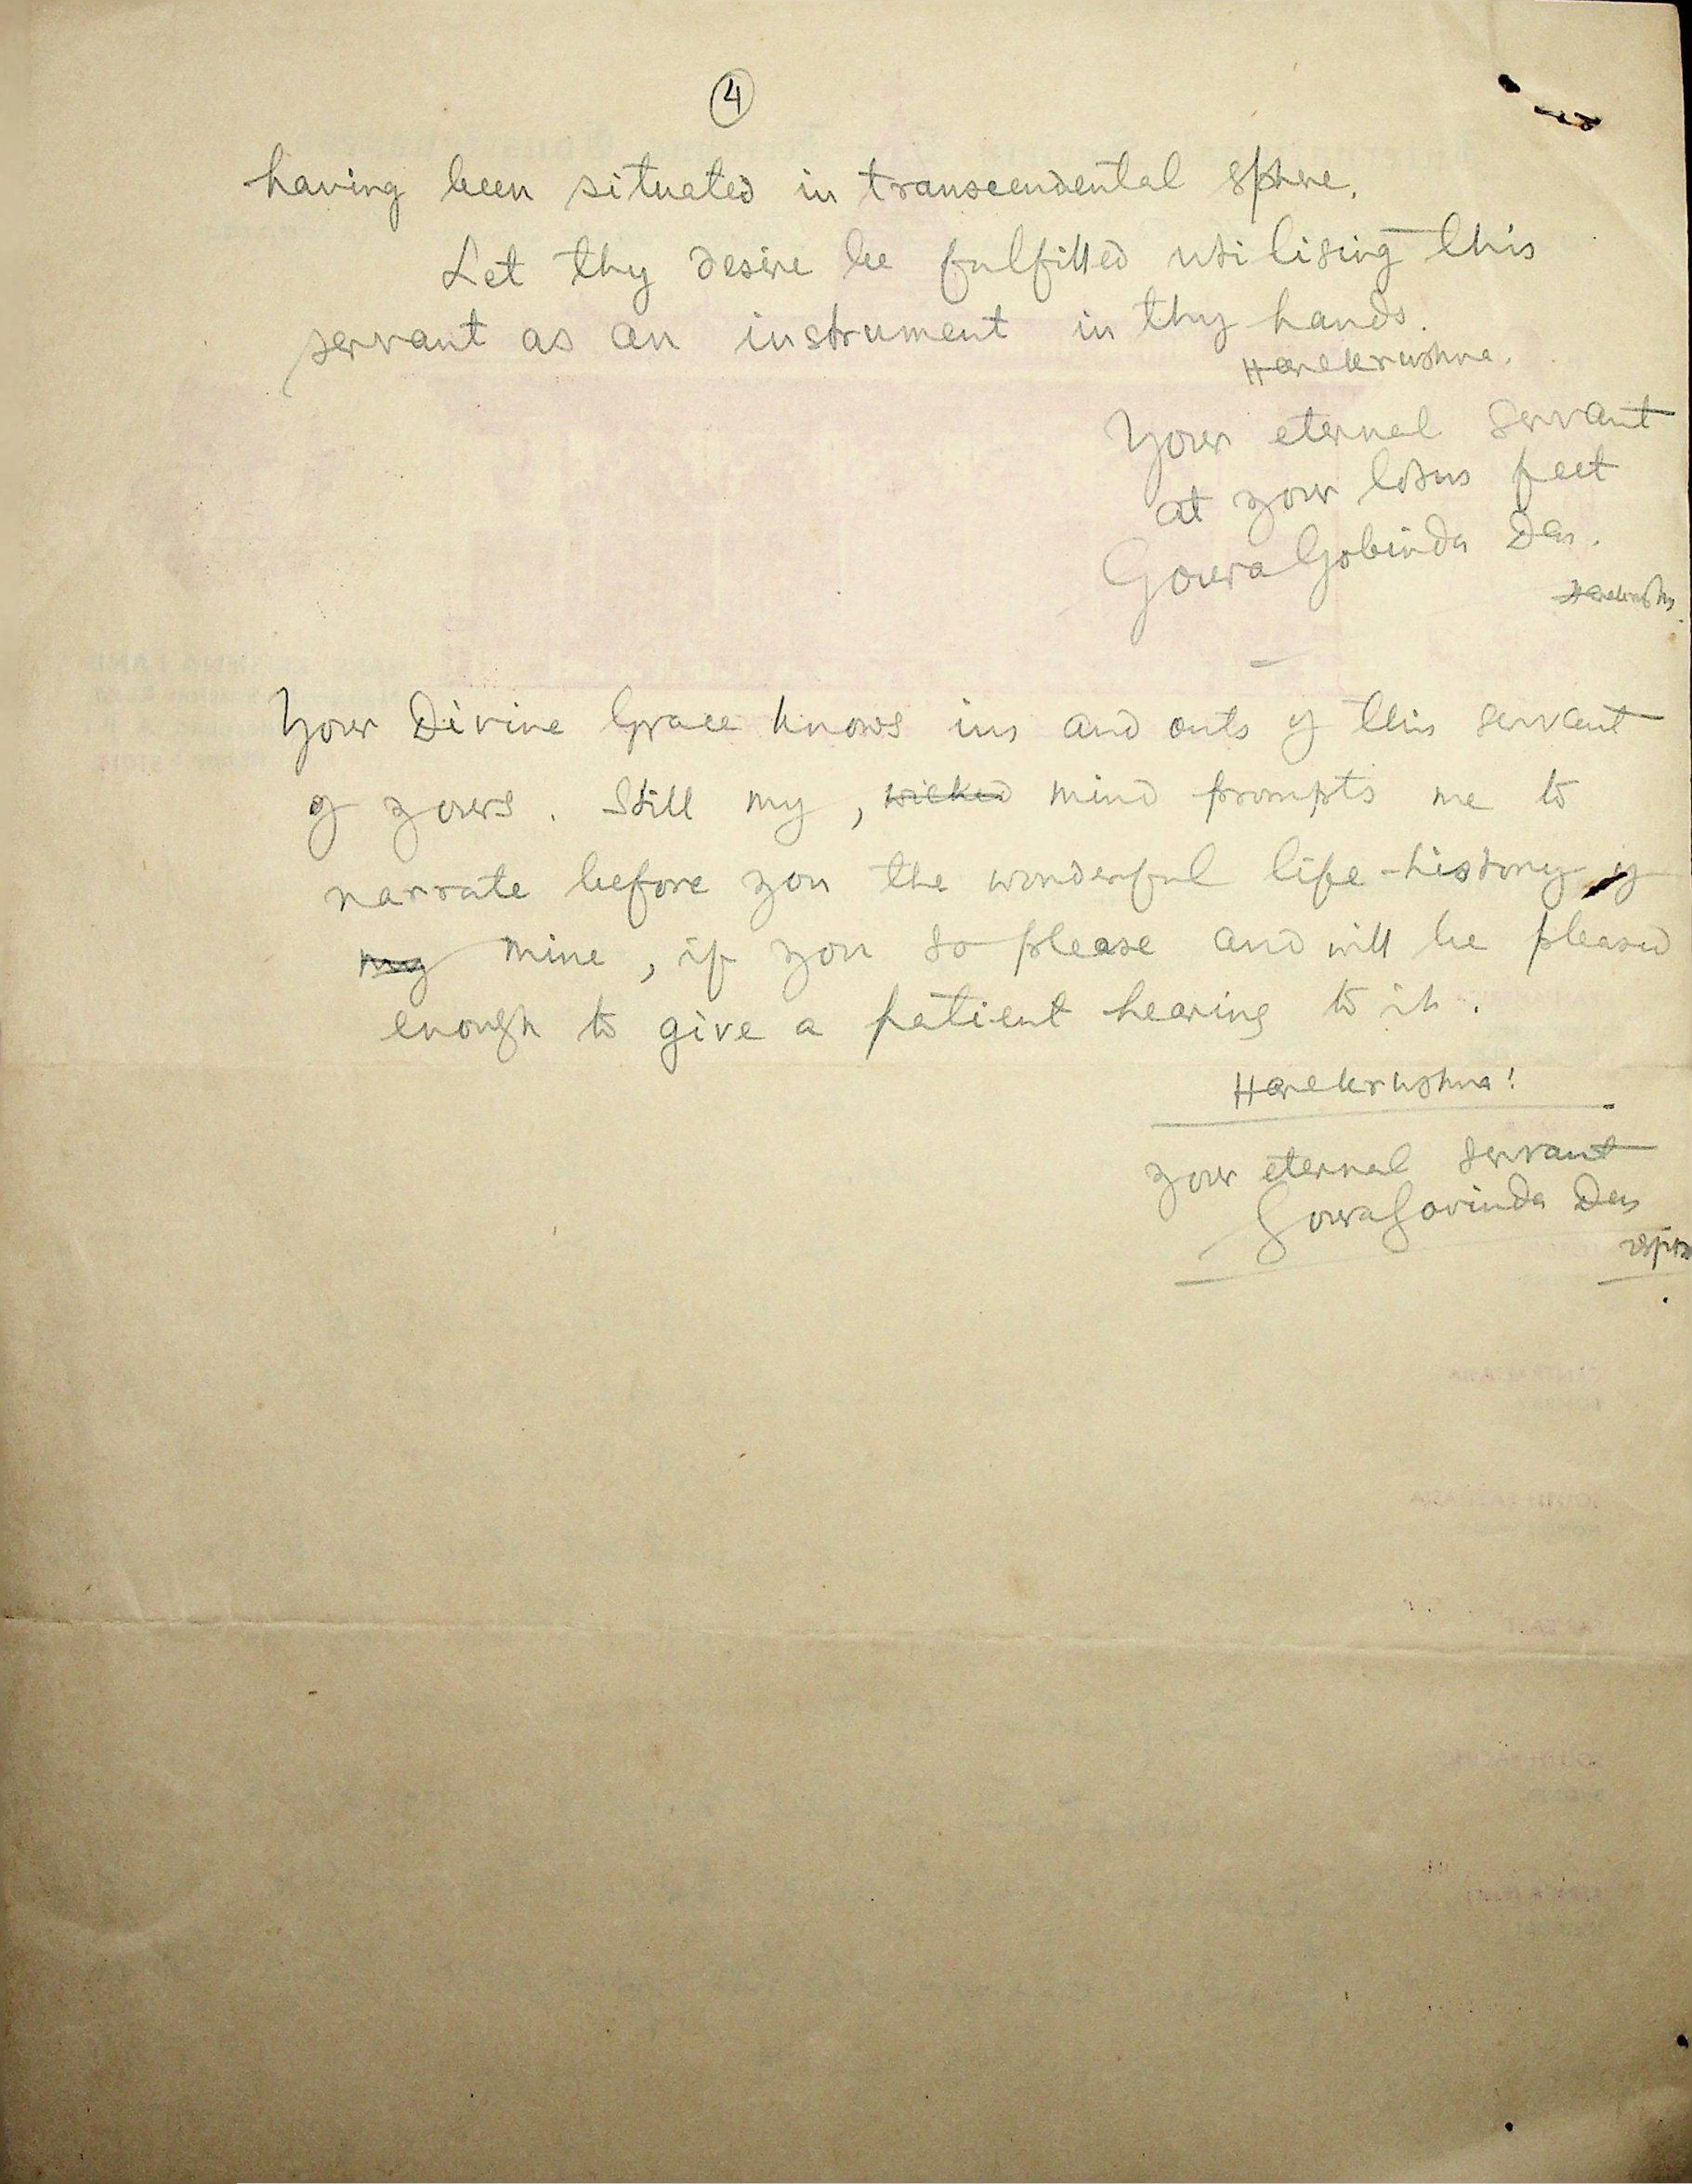 4
having been situated in transcendental sphere.
Let thy desire be fulfilled utilising this
servant as an instrument in thy hands.
Harekrushna.
Your eternal servant
at your lotus feet
Goura Gobinda Das.
Your Divine Grace knows ins and outs of this servant
of yours. Still my, wicked mind prompts me to
narrate before you the wonderful life-history of
my mine, if you so please and will be pleased
enough to give a patient hearing to it.
Harekrushna!
your eternal servant
GouraGovinda Das